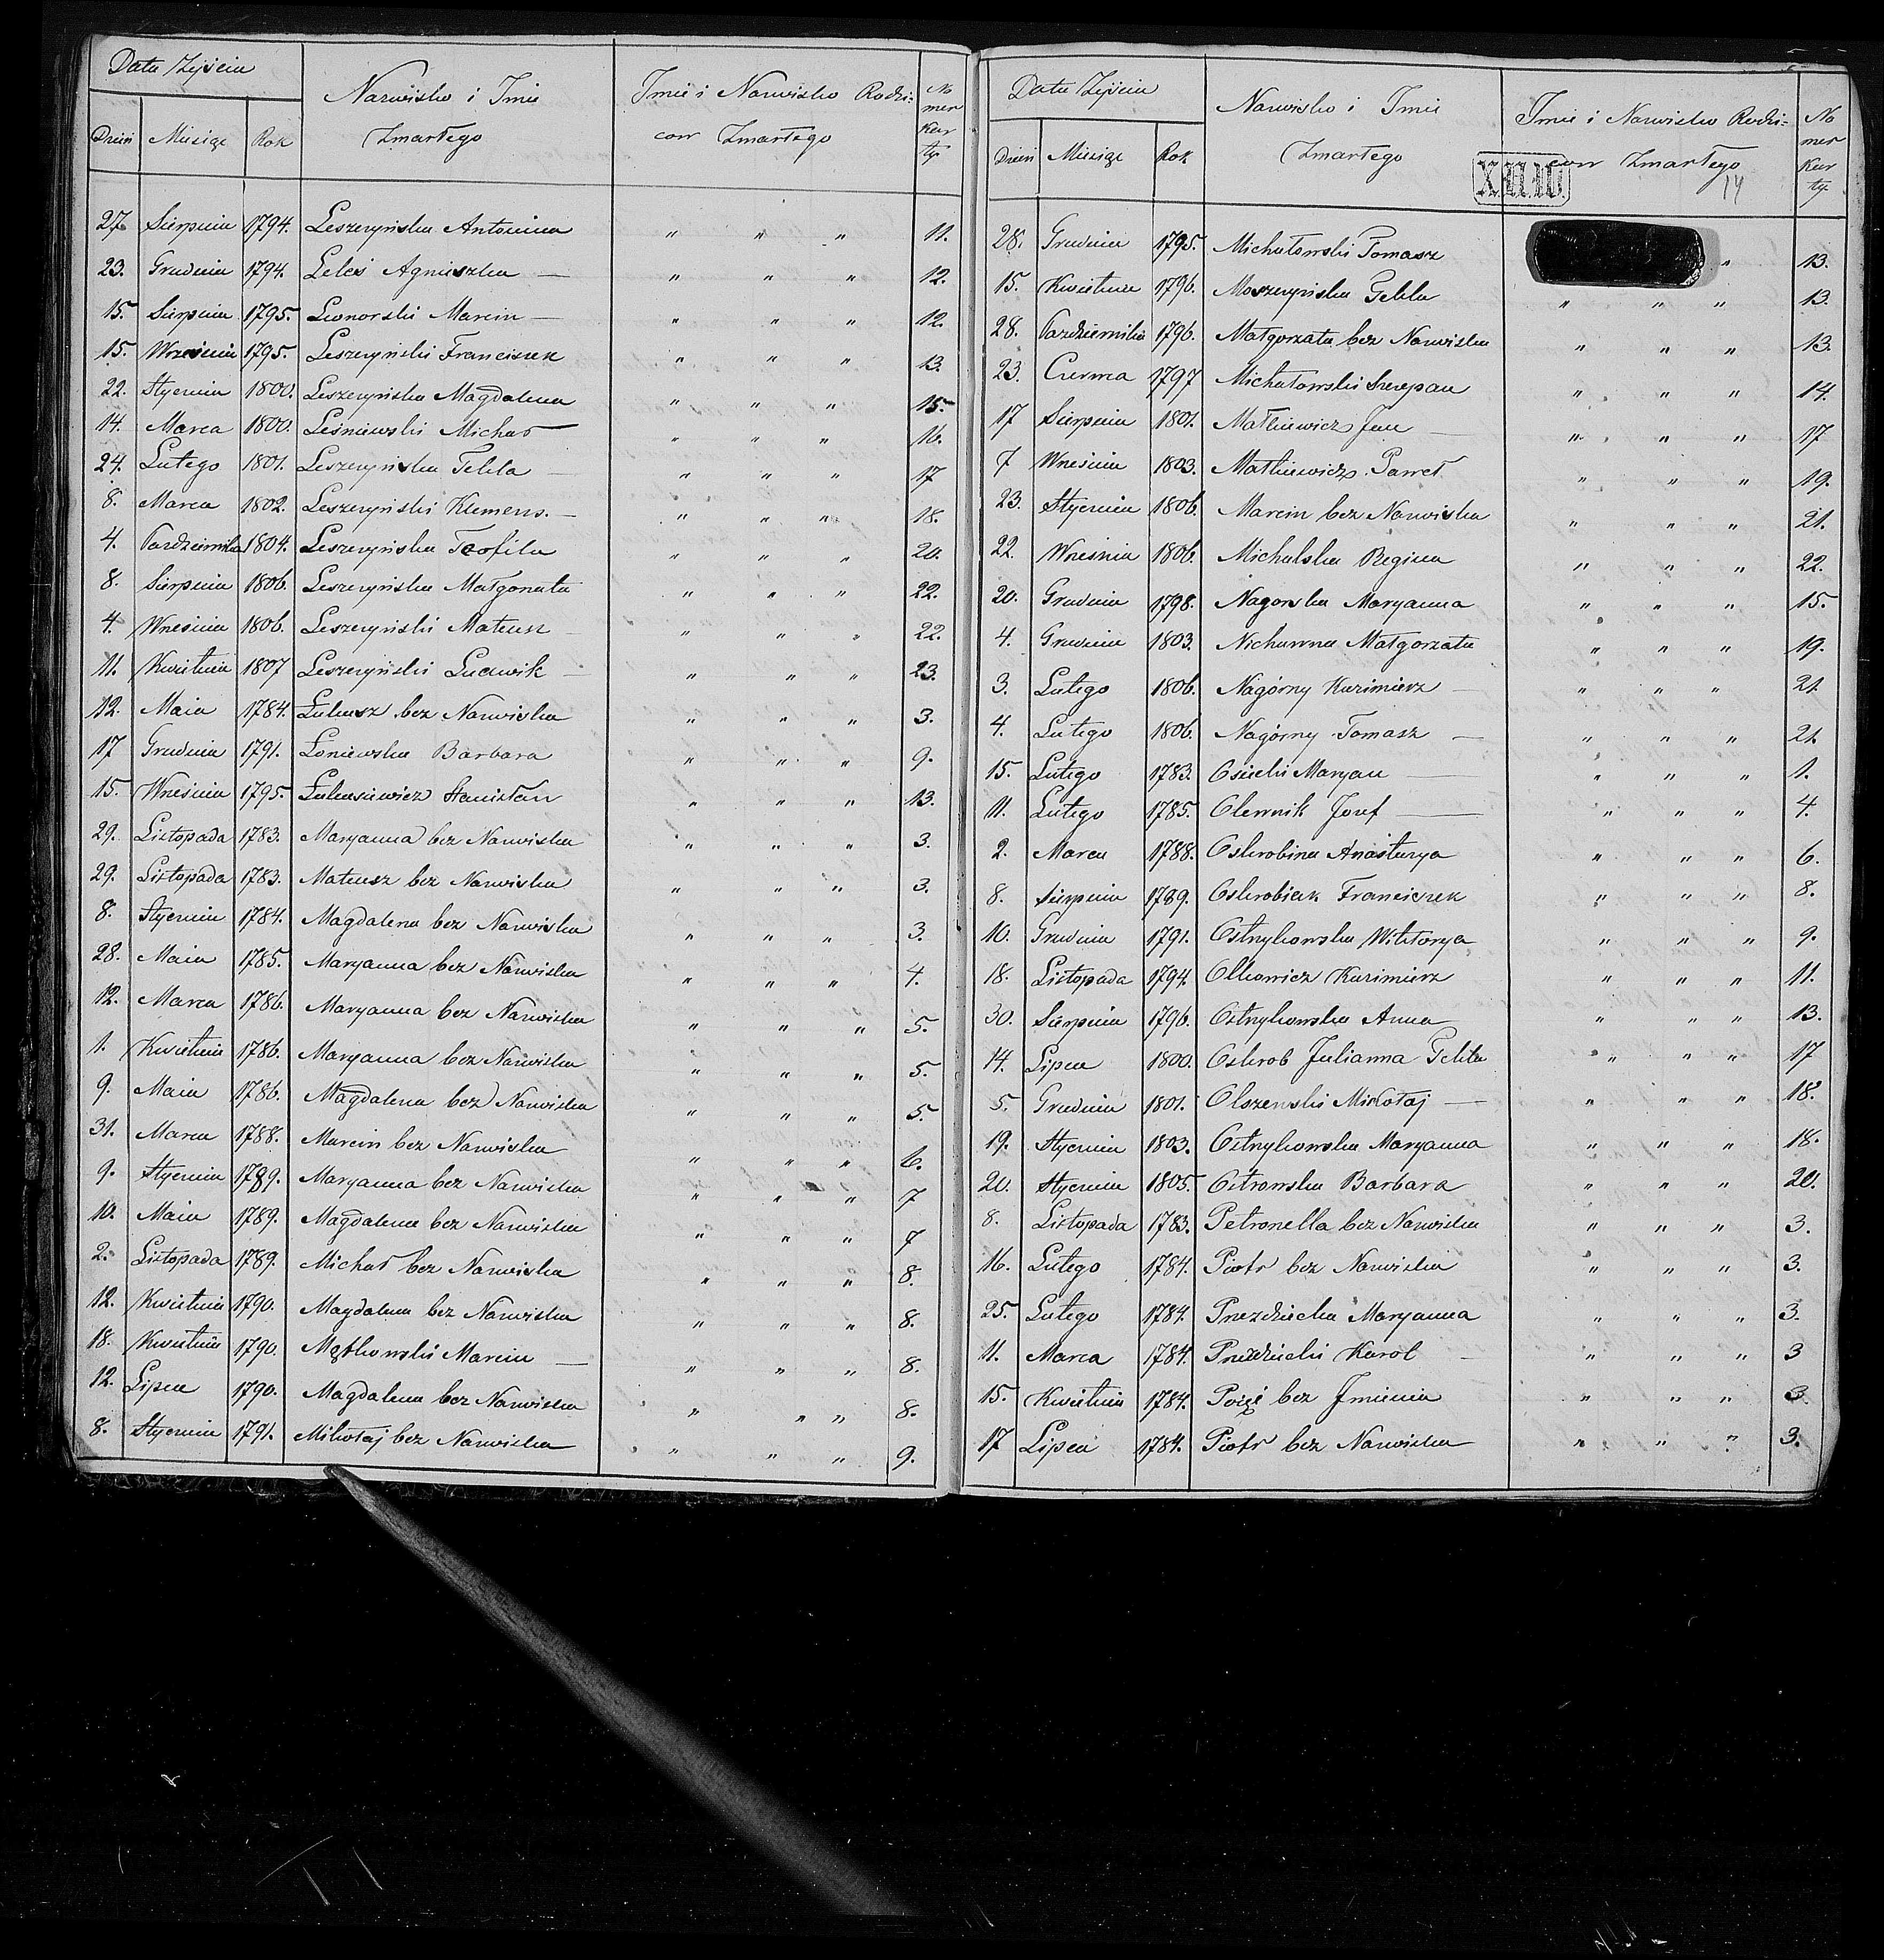 Data Zejścia
Dzień Miesiąc Rok
Nazwisko i Imie Zmarłego
Imie i Nazwisko Rodzi-
cow Zmarłego
No
mer
Kar
ty
27. Sierpnia 1794. Leszczyńska Antonina " " " 11.
23. Grudnia 1794. Leleś Agnieszka — " " " 12.
15. Sierpnia 1795. Leonorski Marcin — " " " 12.
15. Września 1795. Leszczyński Franciszek " " " 13.
22. Stycznia 1800. Leszczyńska Magdalena " " " 15.
14. Marca 1800. Leśniewski Michał " " " 16.
24. Lutego 1801. Leszczyńska Tekla — " " " 17
8. Marca 1802. Leszczyński Klemens. — " " " 18.
4. Pazdziernika 1804. Leszczyńska Teofila " " " 20.
8. Sierpnia 1806. Leszczyńska Małgorzata " " " 22.
4. Września 1806. Leszczyński Mateusz — " " " 22.
11. Kwietnia 1807 Leszczyński Ludwik — " " " 23.
12. Maia 1784. Łukasz bez Nazwiska " " " 3.
17 Grudnia 1791. Łoniewska Barbara " " " 9.
15. Września 1795. Łukasiewicz Stanisław " " " 13.
29. Listopada 1783. Maryanna bez Nazwiska " " " 3.
29. Listopada 1783. Mateusz bez Nazwiska " " " 3.
8. Stycznia 1784. Magdalena bez Nazwiska " " " 3.
28. Maia 1785. Maryanna bez Nazwiska " " " 4.
12. Marca 1786. Maryanna bez Nazwiska " " " 5.
1. Kwietnia 1786. Maryanna bez Nazwiska " " " 5.
9. Maia 1786. Magdalena bez Nazwiska " " " 5.
31. Marca 1788. Marcin bez Nazwiska " " " 6.
9. Stycznia 1789. Maryanna bez Nazwiska " " " 7
10. Maia 1789. Magdalena bez Nazwiska " " " 7
2. Listopada 1789. Michał bez Nazwiska " " " 8.
12. Kwietnia 1790. Magdalena bez Nazwiska " " " 8.
18. Kwietnia 1790. Mętkowski Marcin — " " " 8.
12. Lipca 1790. Magdalena bez Nazwiska " " " 8.
8. Stycznia 1791. Mikołaj bez Nazwiska " " " 9.
Data Zejścia
Dzień Miesiąc Rok
Nazwisko i Imie
Zmarłego
Imie i Nazwisko Rodzi-
cow Zmarłego
14
No
mer
Kar
ty
28. Grudnia 1795. Michałowski Tomasz " 13.
15. Kwietnia 1796. Moszczyńska Tekla " " " 13.
28. Pazdziernika 1796. Małgorzata bez Nazwiska " " " 13.
23. Czerwca 1797 Michałowski Szczepan " " " 14.
17 Sierpnia 1801. Matkiewicz Jan — " " " 17
7 Września 1803. Matkiewicz Paweł " " " 19.
23. Stycznia 1806. Marcin bez Nazwiska " " " 21.
22. Września 1806. Michalska Regina " " " 22.
20. Grudnia 1798. Nagorska Maryanna " " " 15.
4. Grudnia 1803. Nichawna Małgorzata " " " 19.
3. Lutego 1806. Nagórny Kazimierz — " " " 21.
4. Lutego 1806. Nagórny Tomasz — " " " 21.
15. Lutego 1783. Osiecki Maryan — " " " 1.
11. Lutego 1785. Olewnik Jozef — " " " 4.
2. Marca 1788. Oskrobina Anastazya " " " 6.
8. Sierpnia 1789. Oskrobiak Franciszek " " " 8.
10. Grudnia 1791. Ostrzykowska Wiktorya " " " 9.
18. Listopada 1794. Olkowicz Kazimierz " " " 11.
30. Sierpnia 1796. Ostrzykowska Anna " " " 13.
14. Lipca 1800. Oskrob Julianna Tekla " " " 17
5. Grudnia 1801. Olszewski Mikołaj — " " " 18.
19. Stycznia 1803. Ostrzykowska Maryanna " " " 18.
20. Stycznia 1805. Ostrowska Barbara " " " 20.
8. Listopada 1783. Petronella bez Nazwiska " " " 3.
16. Lutego 1784. Piotr bez Nazwiska " " " 3.
25. Lutego 1784. Przezdziecka Maryanna " " " 3.
11. Marca 1784. Przezdziecki Karol — " " " 3
15. Kwietnia 1784. Poizę bez Jmienia " " " 3.
17 Lipca 1784. Piotr bez Nazwiska " " " 3.